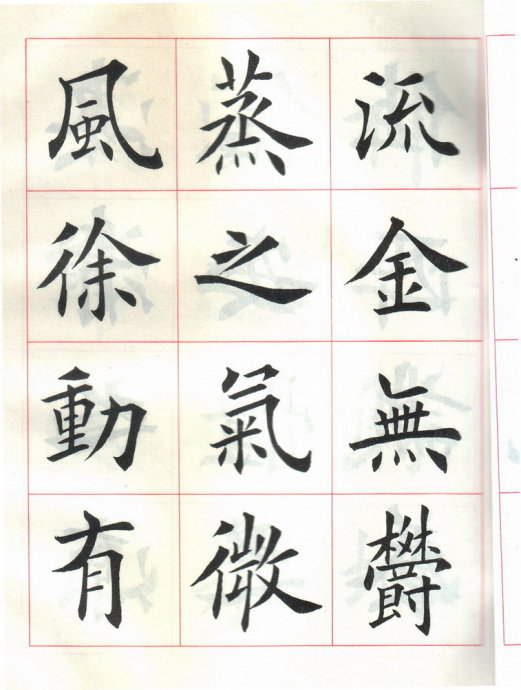 流金無欝
蒸之氣微
風徐動有